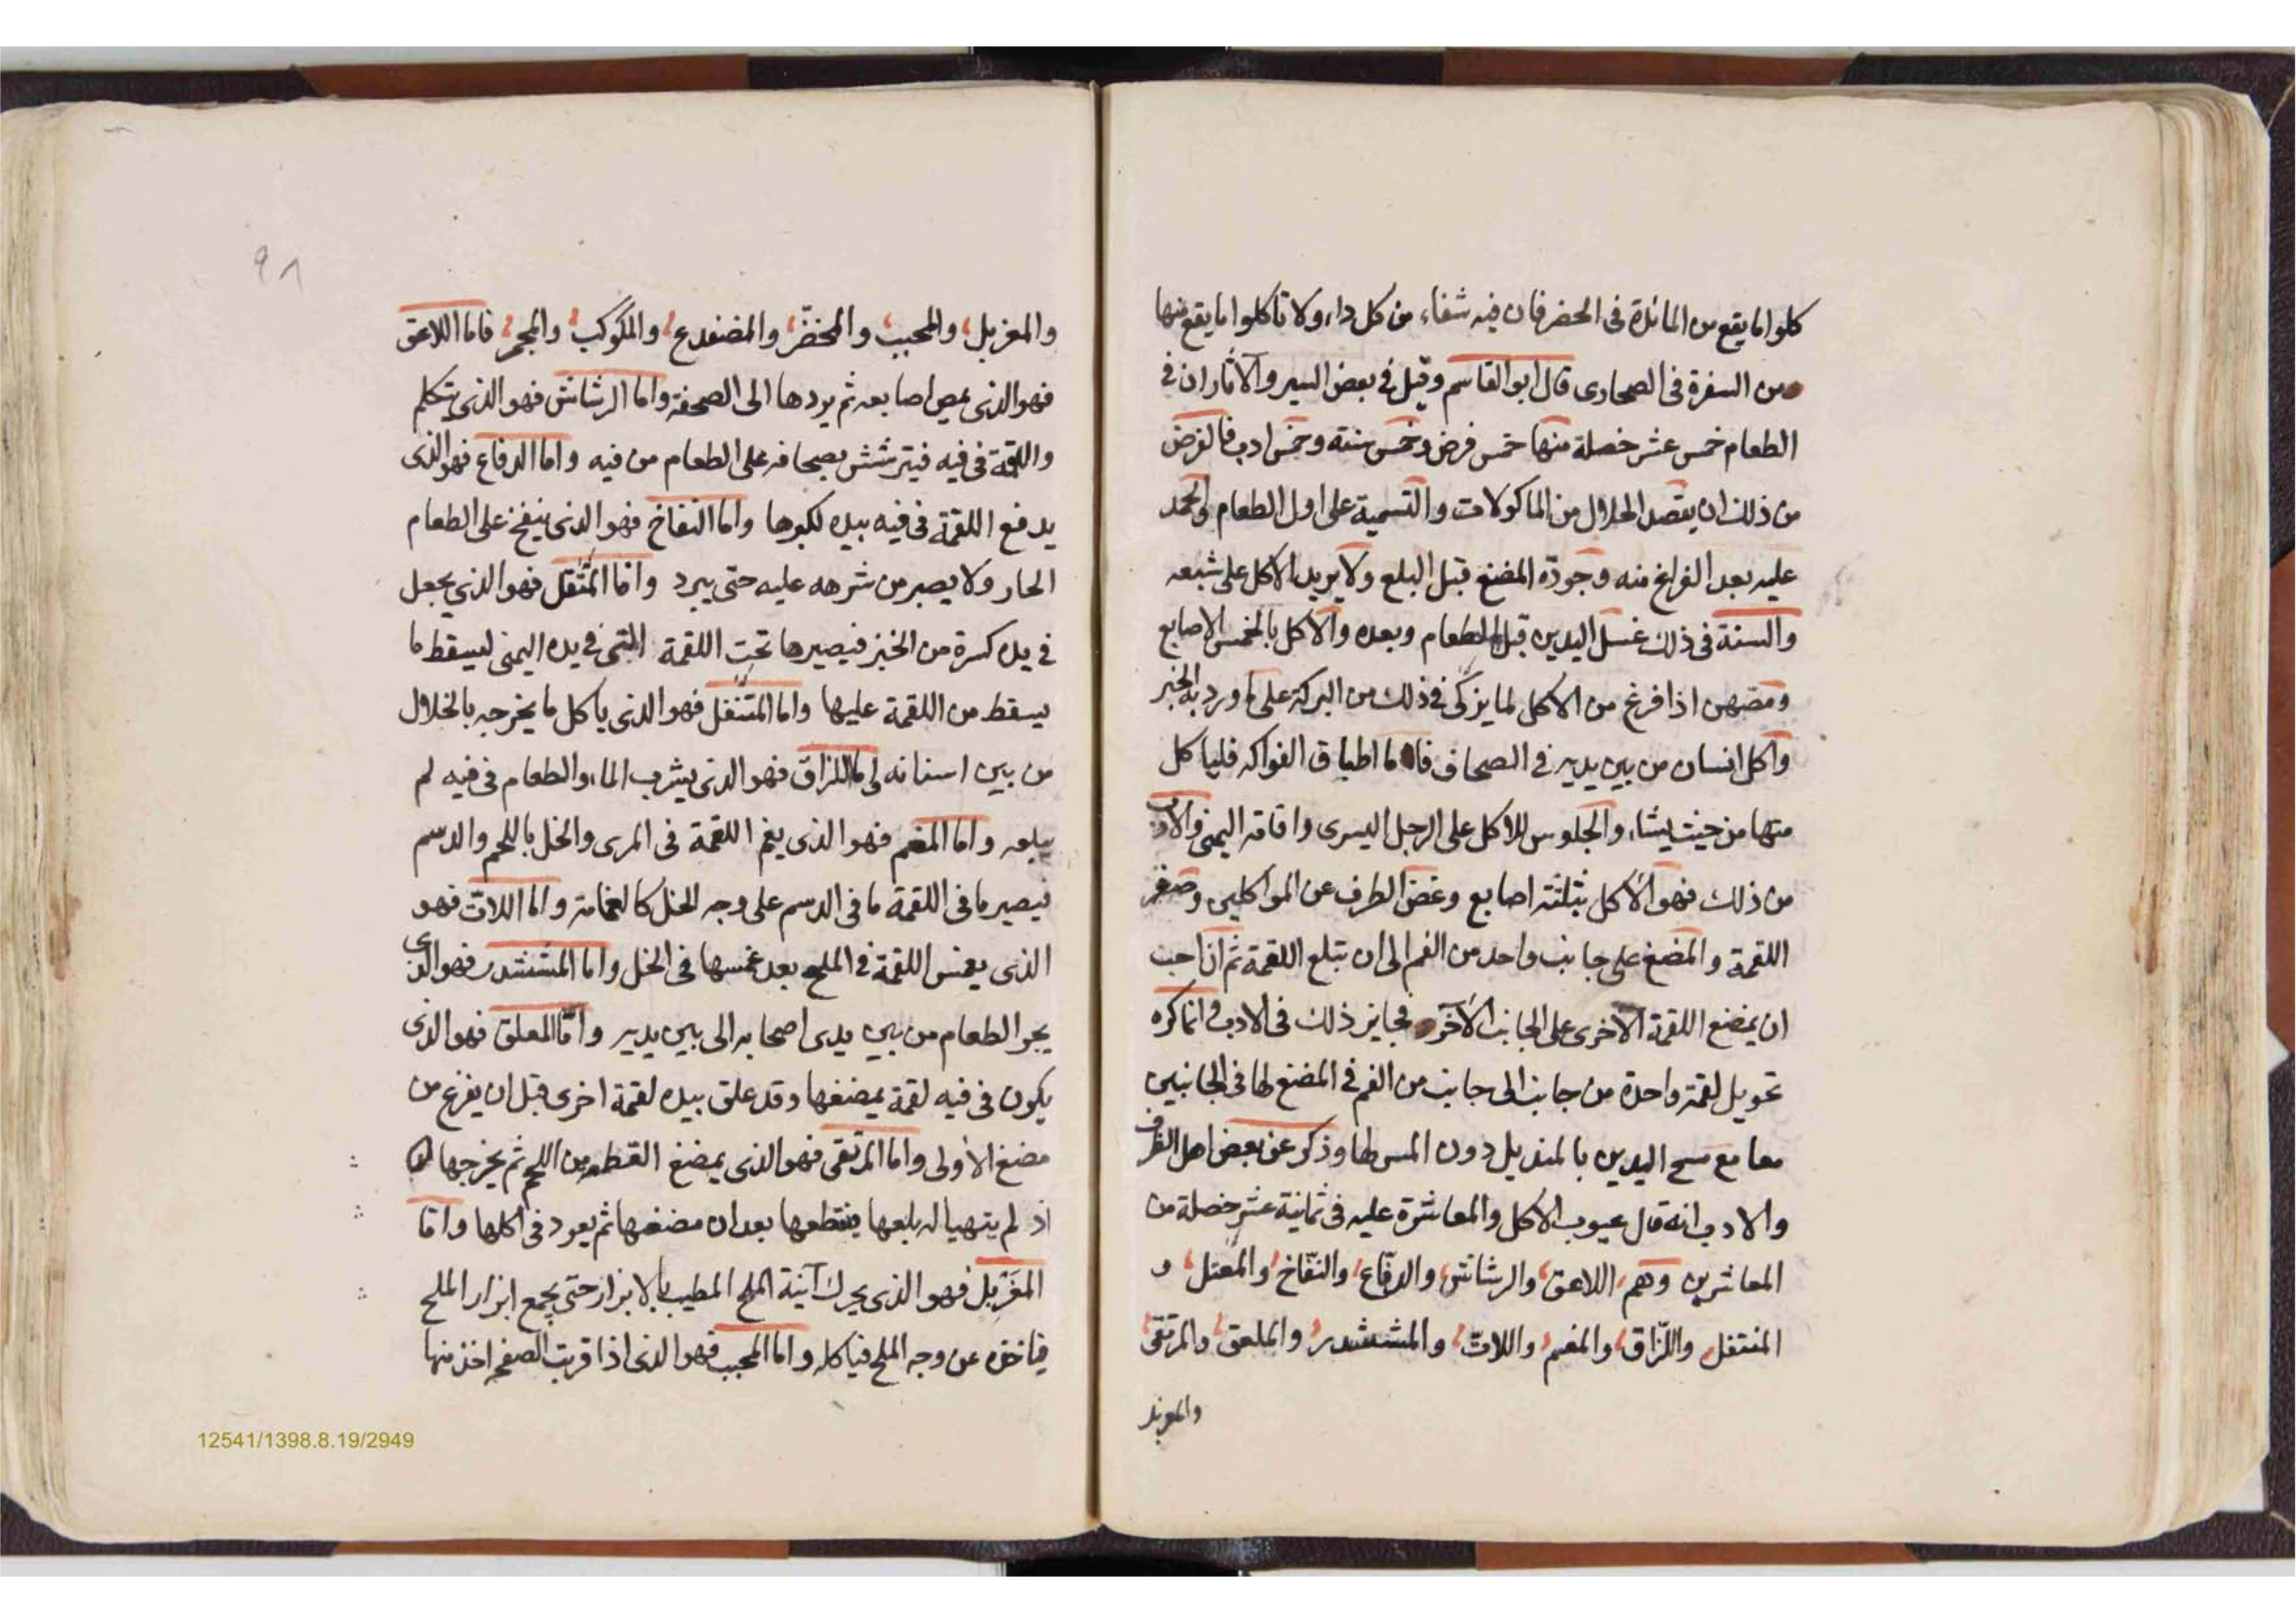 كلوا ما يقع من المائدة في الحضر فان فيه شفاء من كل داء ولا تاكلوا ما يقع منها
من السفرة في الصحارى قال ابو القاسم وقيل في بعض السير والآثار ان في
الطعام خمس عشر خصلة منها خمس فرض وخمس سنة وخمس ادب فالفرض
من ذلك ان يقصد الحلال من الماكولات والتسمية على اول الطعام والحمد
عليه بعد الفراغ منه وجودة المضغ قبل البلع ولا يريد الاكل على شبعه
والسنة في ذلك غسل اليدين قبل الطعام وبعده والاكل بالخمس الاصابع
ومصهن اذا فرغ من الاكل لما يزكى في ذلك من البركة على ما ورد به الخبر
واكل انسان من بين يديه في الصحاف فاما اطباق الفواكه فلياكل
منها من حيث يشاء والجلوس للاكل على الرجل اليسرى واقامة اليمنى والادب
من ذلك فهو الاكل بثلثة اصابع وغض الطرف عن المواكلين وصغر
اللقمة والمضغ على جانب واحد من الفم الى ان تبلع اللقمة ثم ان احب
ان يمضغ اللقمة الاخرى على الجانب الآخر فجايز ذلك في الادب وانما كره
تحويل لقمة واحدة من جانب الى جانب من الفم في المضغ لها في الجانبين
معا مع مسح اليدين بالمنديل دون المس لها وذكر عن بعض اهل الظرف
والادب انه قال عيوب الاكل والمعاشرة عليه في ثمانية عشر خصلة من
المعاشرين وهم اللاعق والرشاش والدفّاع والنفّاخ والمعتل و
المنتفل واللزّاق والمغم واللاتّ والمششدر والملعق والمرتقى
والمغربل
٩٨
والمغربل والمحبب والمخضّر والمضفدع والمكوكب والمجمر فاما اللاعق
فهو الذى يمص اصابعه ثم يردها الى الصحفة واما الرشاش فهو الذى يتكلم
واللقمة في فيه فيترشش بصحافه على الطعام من فيه واما الدفاع فهو الذى
يدفع اللقمة في فيه بيده لكبرها واما النفاخ فهو الذى ينفخ على الطعام
الحار ولا يصبر من شرهه عليه حتى يبرد واما المثقل فهو الذى يجعل
في يده كسرة من الخبز فيصيرها تحت اللقمة التى في يده اليمنى ليسقط ما
يسقط من اللقمة عليها واما المتنفل فهو الذى ياكل ما يخرجه بالخلال
من بين اسنانه واما اللزاق فهو الذى يشرب الماء والطعام في فيه لم
يبلعه واما المغم فهو الذى يغم اللقمة في المرى والخل باللحم والدسم
فيصير ما في اللقمة ما في الدسم على وجه الخل كالغمامة واما اللات فهو
الذى يغمس اللقمة في الملح بعد غمسها في الخل واما المششدر فهو الذى
يجر الطعام من بين يدى اصحابه الى بين يديه وامّا المعلق فهو الذى
يكون في فيه لقمة يمضغها وقد علق بيده لقمة اخرى قبل ان يفرغ من
مضغ الاولى واما المرتقى فهو الذى يمضغ القطعة من اللحم ثم يخرجها
اذ لم يتهيا له بلعها فيقطعها بعد ان مضغها ثم يعود في اكلها واما
المغربل فهو الذى يحرك آنية الملح المطيب بالابزار حتى يجمع ابزار الملح
فياخذه عن وجه الملح فياكله واما المحبب فهو الذى اذا قربت الصفحه اخذ منها
12541/1398.8.19/2949